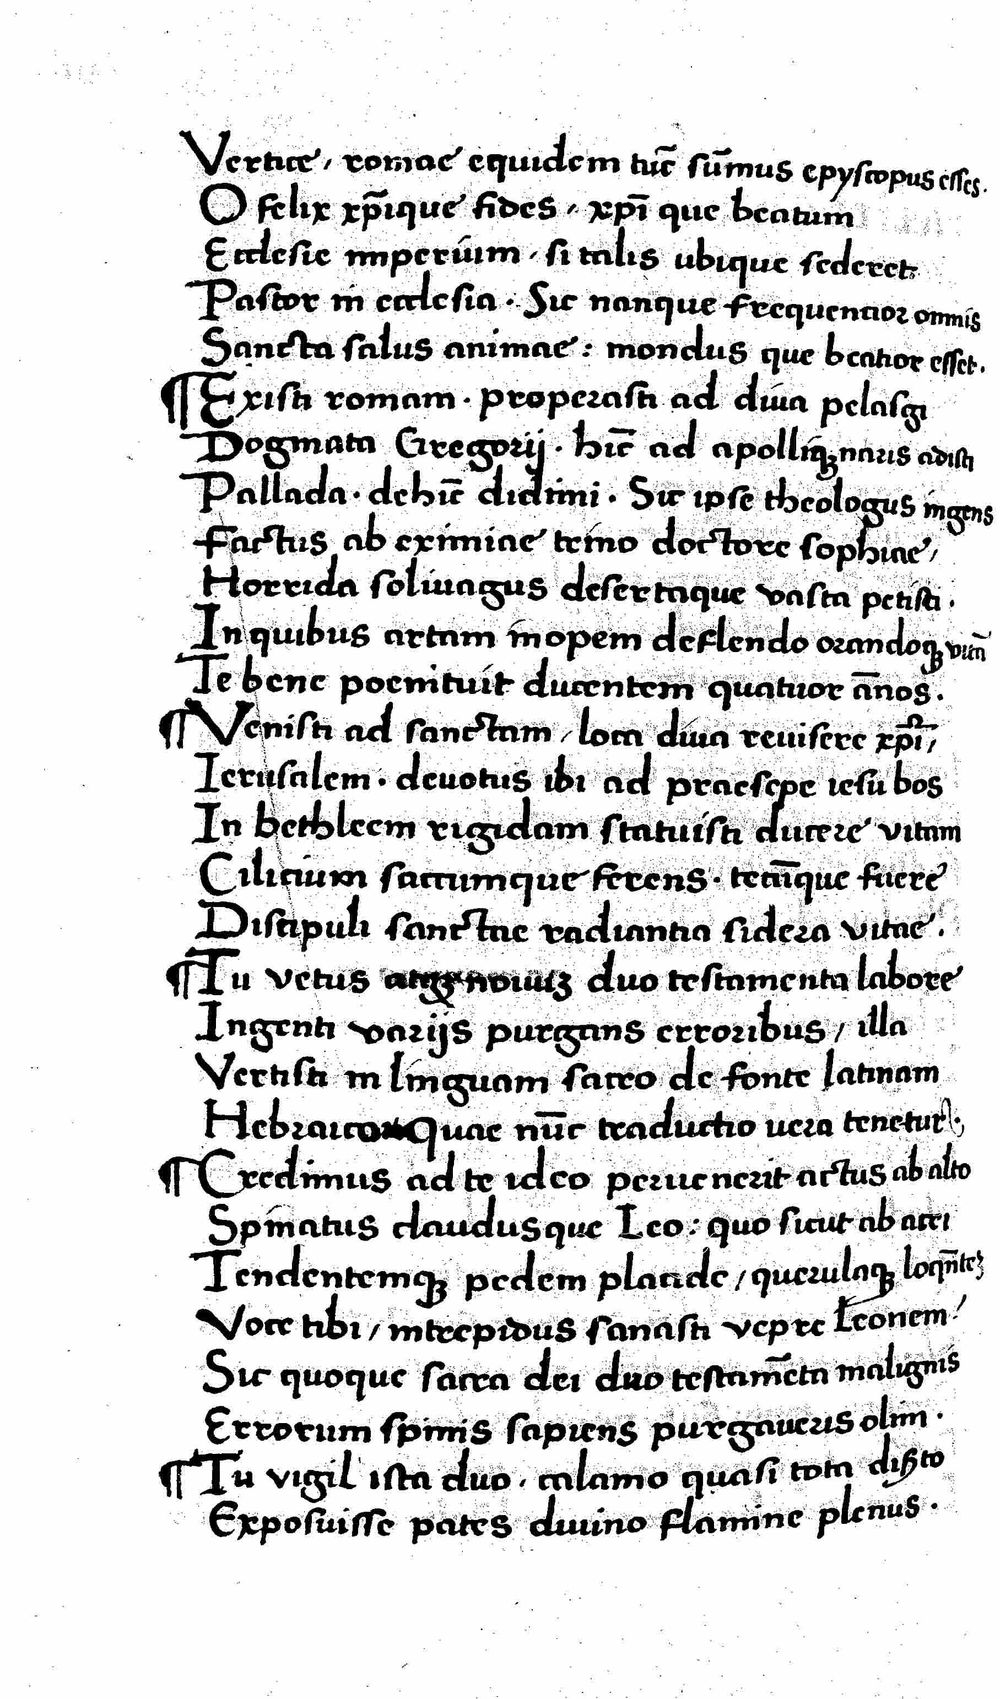 Vertice, romae equidem tūc sūmus epyscopus esses.
O felix xp̄ique fides, xpī que beatum
Ecclesie imperium, si talis ubique sederet
Pastor in ecclesia. Sic nanque frequentior omnis
Sancta salus animae: mondus que beatior esset.
¶ Existi romam. properasti ad diua pelasgi
Dogmata Gregorij. hīc ad apolliq̄ naris adisti
Pallada. dehīc didimi. Sic ipse theologus ingens
Factus ab eximiae temo doctore sophiae,
Horrida soliuagus desertaque vasta petisti.
In quibus artam inopem deflendo orandoq; vitā
Te bene poenituit ducentem quatuor ānos.
¶ Venisti ad sanctam, loca diua reuisere xpī,
Ierusalem. deuotus ibi ad praesepe iesū bos
In bethleem rigidam statuisti ducere vitam
Cilicium saccumque ferens. tecūque fuere
Discipuli sanctae radiantia sidera vitae.
¶ Tu vetus atq; nouuz duo testamenta labore
Ingenti varijs purgans erroribus, illa
Vertisti in linguam sacro de fonte latinam
Hebraico Quae nūc traductio uera tenetur.
¶ Credimus ad te ideo peruenerit actus ab alto
Spinatus claudusque Leo: quo sicut ab acri
Tendentemq; pedem placide, querulaq; loqn̄tez
Voce tibi, intrepidus sanasti vepre Leonem!
Sic quoque sacra dei duo testam̄eta malignis
Errorum spinis sapiens purgaueris olim.
¶ Tu vigil ista duo. calamo quasi tota diſerto
Exposuisse pates diuino flamine plenus.